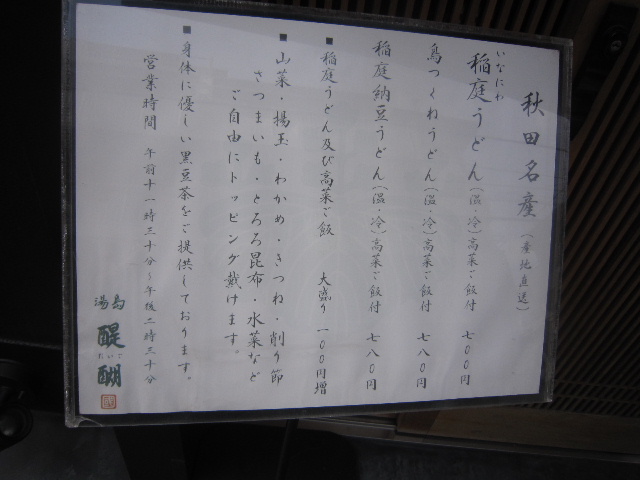 秋田名産（産地直送）
いなにわ
稲庭うどん（温・冷）高菜ご飯付 七００円
鳥つくねうどん（温・冷）高菜ご飯付 七八０円
稲庭納豆うどん（温・冷）高菜ご飯付 七八０円
■稲庭うどん及び高菜ご飯 大盛り 一００円増
■山菜・揚玉・わかめ・きつね・削り節
さつまいも・とろろ昆布・水菜など
ご自由にトッピング戴けます。
■身体に優しい黒豆茶をご提供しております。
営業時間 午前十一時三十分～午後二時三十分
湯島
醍醐
だいご